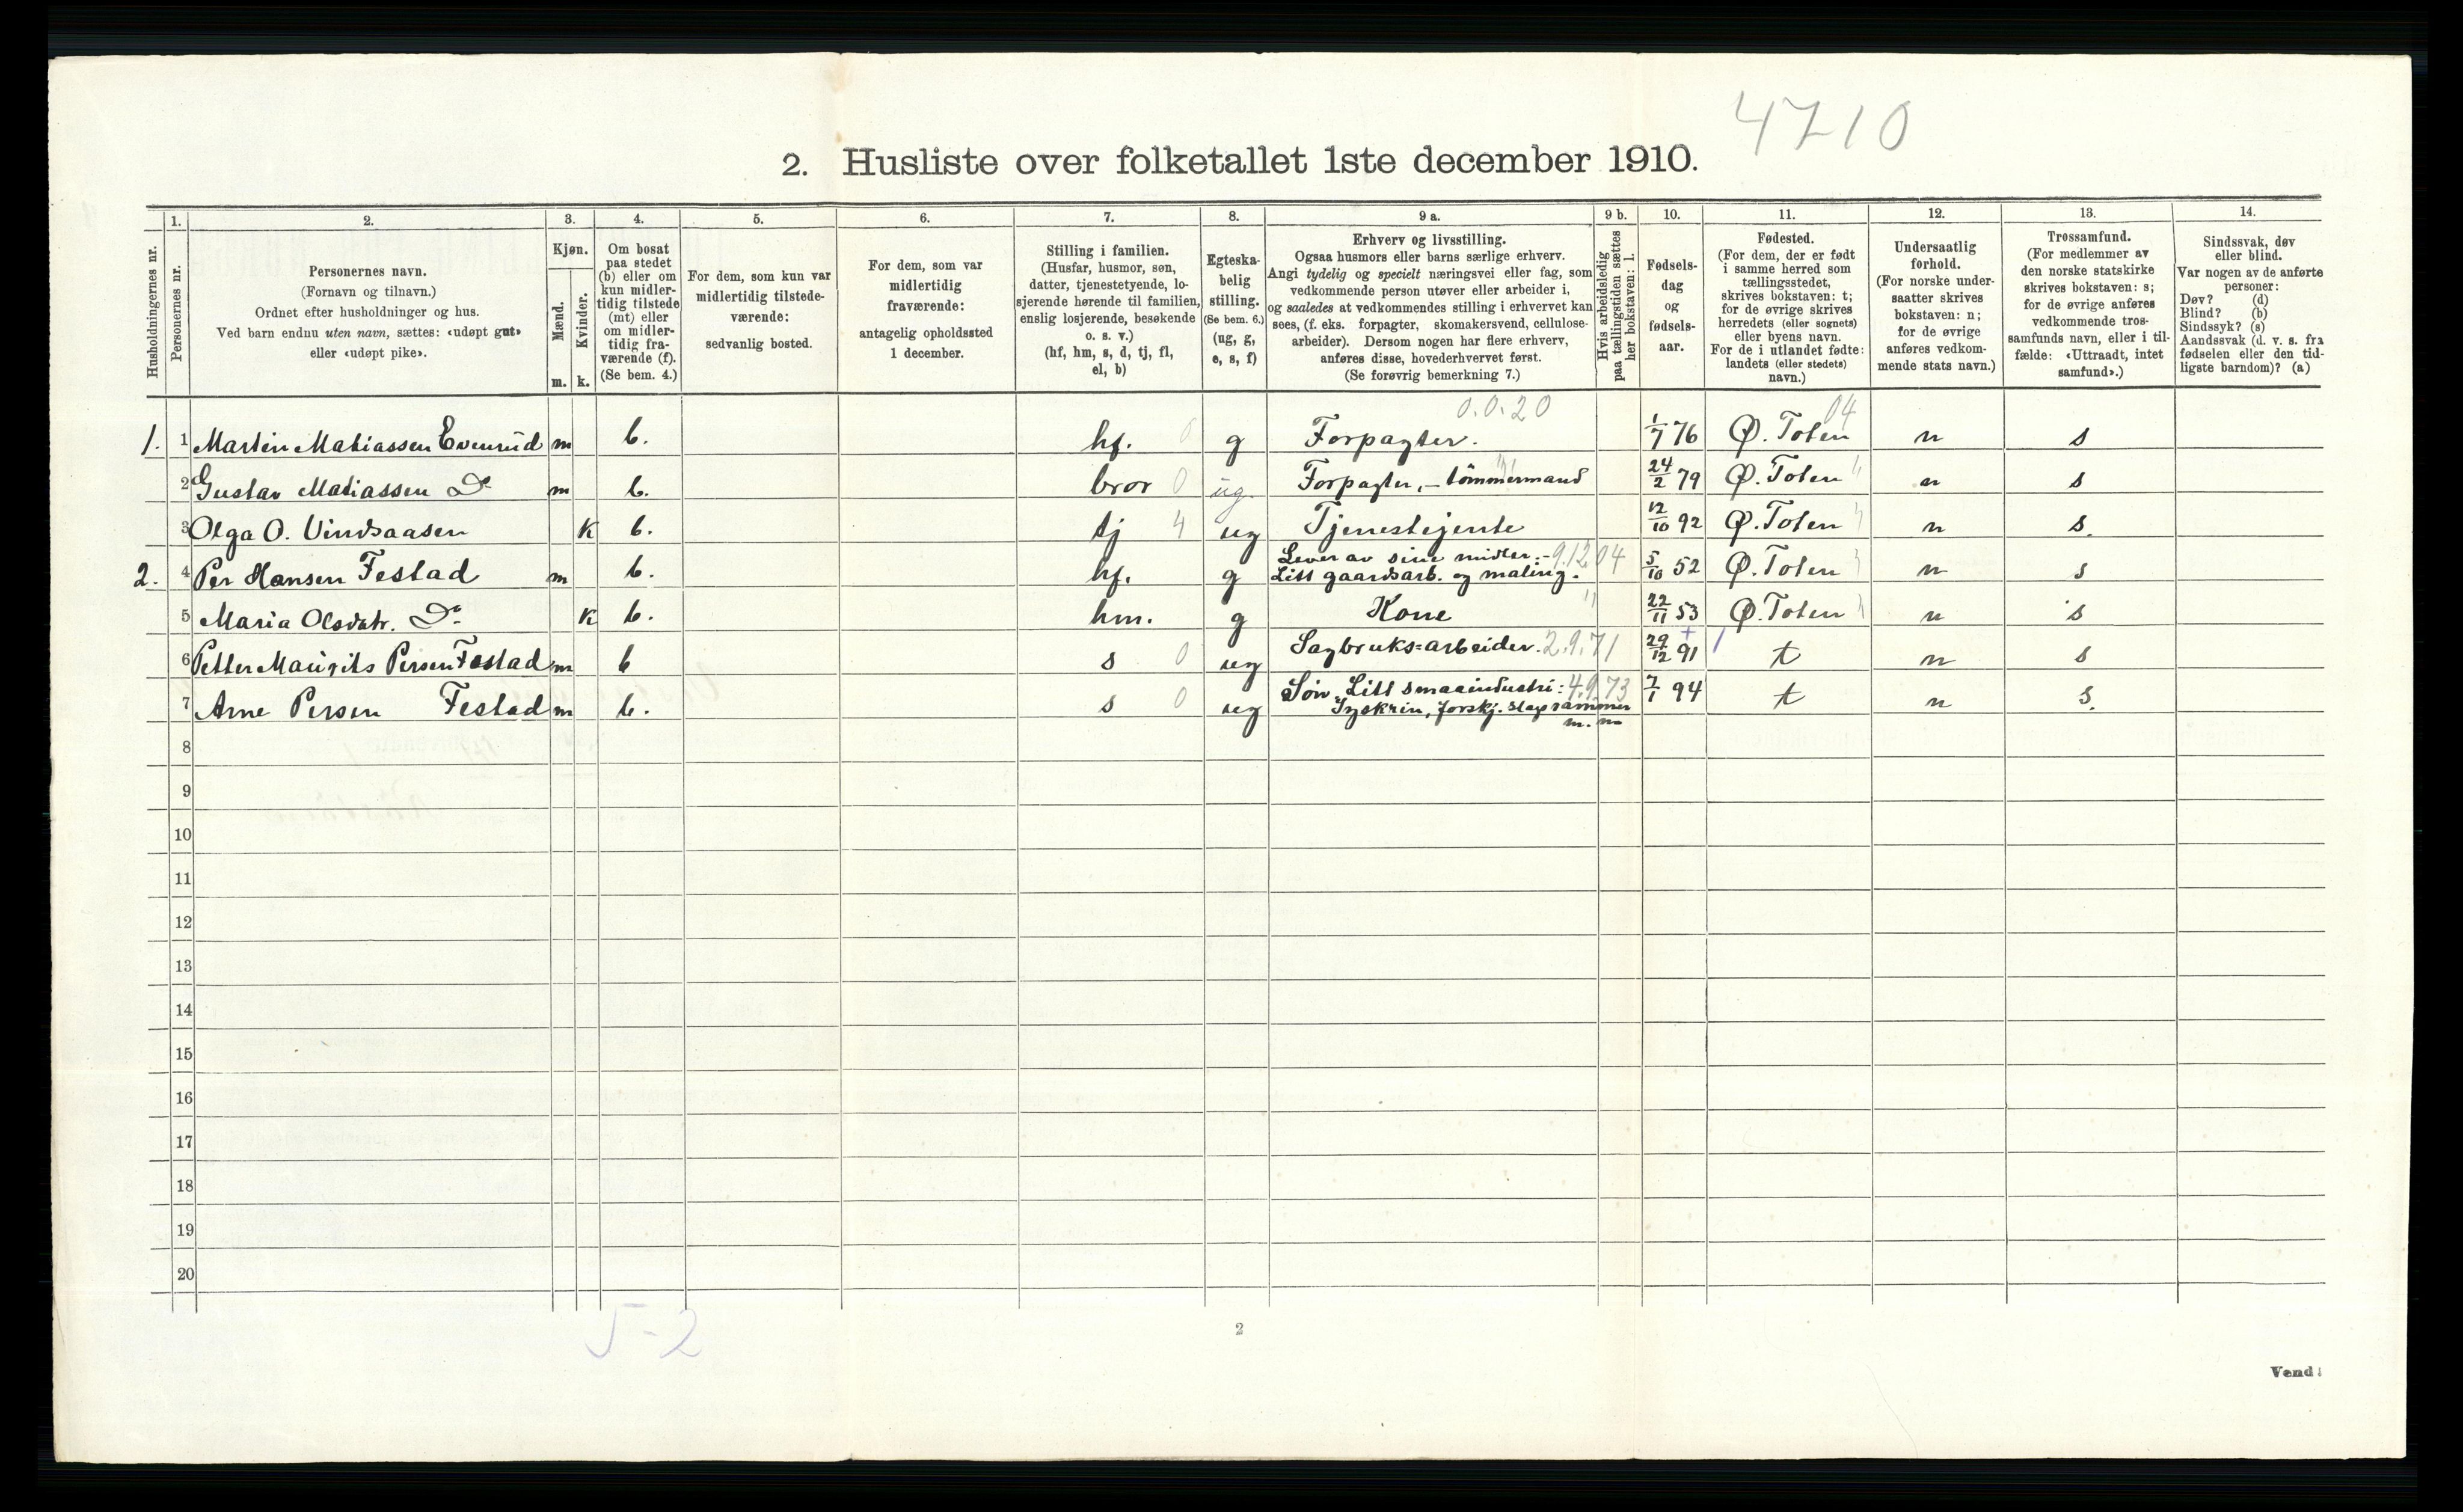 4710
2. Husliste over folketallet 1ste december 1910.
1. 2. 3. 4. 5. 6. 7. 8. 9 a. 9 b. 10. 11. 12. 13. 14.
Husholdningernes nr.
Personernes nr.
Personernes navn.
(Fornavn og tilnavn.)
Ordnet efter husholdninger og hus.
Ved barn endnu uten navn, sættes: «udøpt gut»
eller «udøpt pike».
Kjøn.
Mænd.
Kvinder.
m. k.
Om bosat
paa stedet
(b) eller om
kun midler-
tidig tilstede
(mt) eller
om midler-
tidig fra-
værende (f).
(Se bem. 4.)
For dem, som kun var
midlertidig tilstede-
værende:
sedvanlig bosted.
For dem, som var
midlertidig
fraværende:
antagelig opholdssted
1 december.
Stilling i familien.
(Husfar, husmor, søn,
datter, tjenestetyende, lo-
sjerende hørende til familien,
enslig losjerende, besøkende
o. s. v.)
(hf, hm, s, d, tj, fl,
el, b)
Egteska-
belig
stilling.
(Se bem. 6.)
(ug, g,
e, s, f)
Erhverv og livsstilling.
Ogsaa husmors eller barns særlige erhverv.
Angi tydelig og specielt næringsvei eller fag, som
vedkommende person utøver eller arbeider i,
og saaledes at vedkommendes stilling i erhvervet kan
sees, (f. eks. forpagter, skomakersvend, cellulose-
arbeider). Dersom nogen har flere erhverv,
anføres disse, hovederhvervet først.
(Se forøvrig bemerkning 7.)
Hvis arbeidsledig
paa tællingstiden sættes
her bokstaven: l.
Fødsels-
dag
og
fødsels-
aar.
Fødested.
(For dem, der er født
i samme herred som
tællingsstedet,
skrives bokstaven: t;
for de øvrige skrives
herredets (eller sognets)
eller byens navn.
For de i utlandet fødte:
landets (eller stedets)
navn.)
Undersaatlig
forhold.
(For norske under-
saatter skrives
bokstaven: n;
for de øvrige
anføres vedkom-
mende stats navn.)
Trossamfund.
(For medlemmer av
den norske statskirke
skrives bokstaven: s;
for de øvrige anføres
vedkommende tros-
samfunds navn, eller i til-
fælde: «Uttraadt, intet
samfund».)
Sindssvak, døv
eller blind.
Var nogen av de anførte
personer:
Døv? (d)
Blind? (b)
Sindssyk? (s)
Aandssvak (d. v. s. fra
fødselen eller den tid-
ligste barndom)? (a)
0.0.20 04
1. 1 Martin Matiassen Evenrud m b. hf. 0 g Forpagter. 1/7 76 Ø. Toten n s
2 Gustav Matiassen Do m b. bror 0 ug. Forpagter, - tömmermand 24/2 79 Ø. Toten n s
3 Olga O. Vindsaasen k b. tj 4 ug Tjenestejente 12/10 92 Ø. Toten n s.
Lever av sine midler. - 9.12.04
2. 4 Per Hansen Festad m b. hf. g Litt gaardsarb. og maling. 5/10 52 Ø. Toten n s
5 Maria Olsdatr. Do k b. hm. g Kone 22/11 53 Ø. Toten n s
6 Petter Maurits Persen Festad m b s 0 ug Sagbruks=arbeider. 2.9.71 29/12 91 t n s
7 Arne Persen Festad m b. s 0 ug Søn, Litt smaaindustri: 4.9.73 7/1 94 t n s.
Syskrin, forskj. slags rammer
m. m
8
9
10
11
12
13
14
15
16
17
18
19
20
5-2
2
Vend!